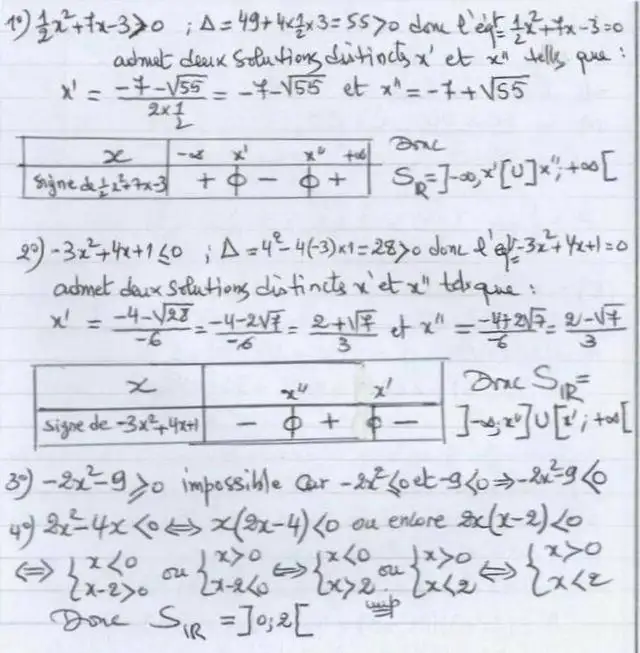 1°) 1/2 x² + 7x - 3 > 0 ; Δ = 49 + 4 × 1/2 × 3 = 55 > 0 donc l'éqt 1/2 x² + 7x - 3 = 0
admet deux solutions distincts x' et x" telles que :
x' = (-7 - √55)/(2 × 1/2) = -7 - √55 et x" = -7 + √55
x | -∞ x' x" +∞
Signe de 1/2 x² + 7x - 3 | + 0 - 0 +
Donc
S_IR = ]-∞, x'[ U ]x"; +∞[
2°) -3x² + 4x + 1 ≤ 0 ; Δ = 4² - 4(-3) × 1 = 28 > 0 donc l'éqt -3x² + 4x + 1 = 0
admet deux solutions distincts x' et x" tels que :
x' = (-4 - √28)/-6 = (-4 - 2√7)/-6 = (2 + √7)/3 et x" = (-4 + 2√7)/-6 = (2 - √7)/3
x | x" x'
signe de -3x² + 4x + 1 | - 0 + 0 -
Donc S_IR =
]-∞; x"] U [x'; +∞[
3°) -2x² - 9 ≥ 0 impossible car -2x² ≤ 0 et -9 < 0 ⇒ -2x² - 9 < 0
4°) 2x² - 4x < 0 ⇔ x(2x - 4) < 0 ou encore 2x(x - 2) < 0
⇔ { x < 0 x - 2 > 0 ou { x > 0 x - 2 < 0 ⇔ { x < 0 x > 2 imp ou { x > 0 x < 2 ⇔ { x > 0 x < 2
Donc S_IR = ]0; 2[